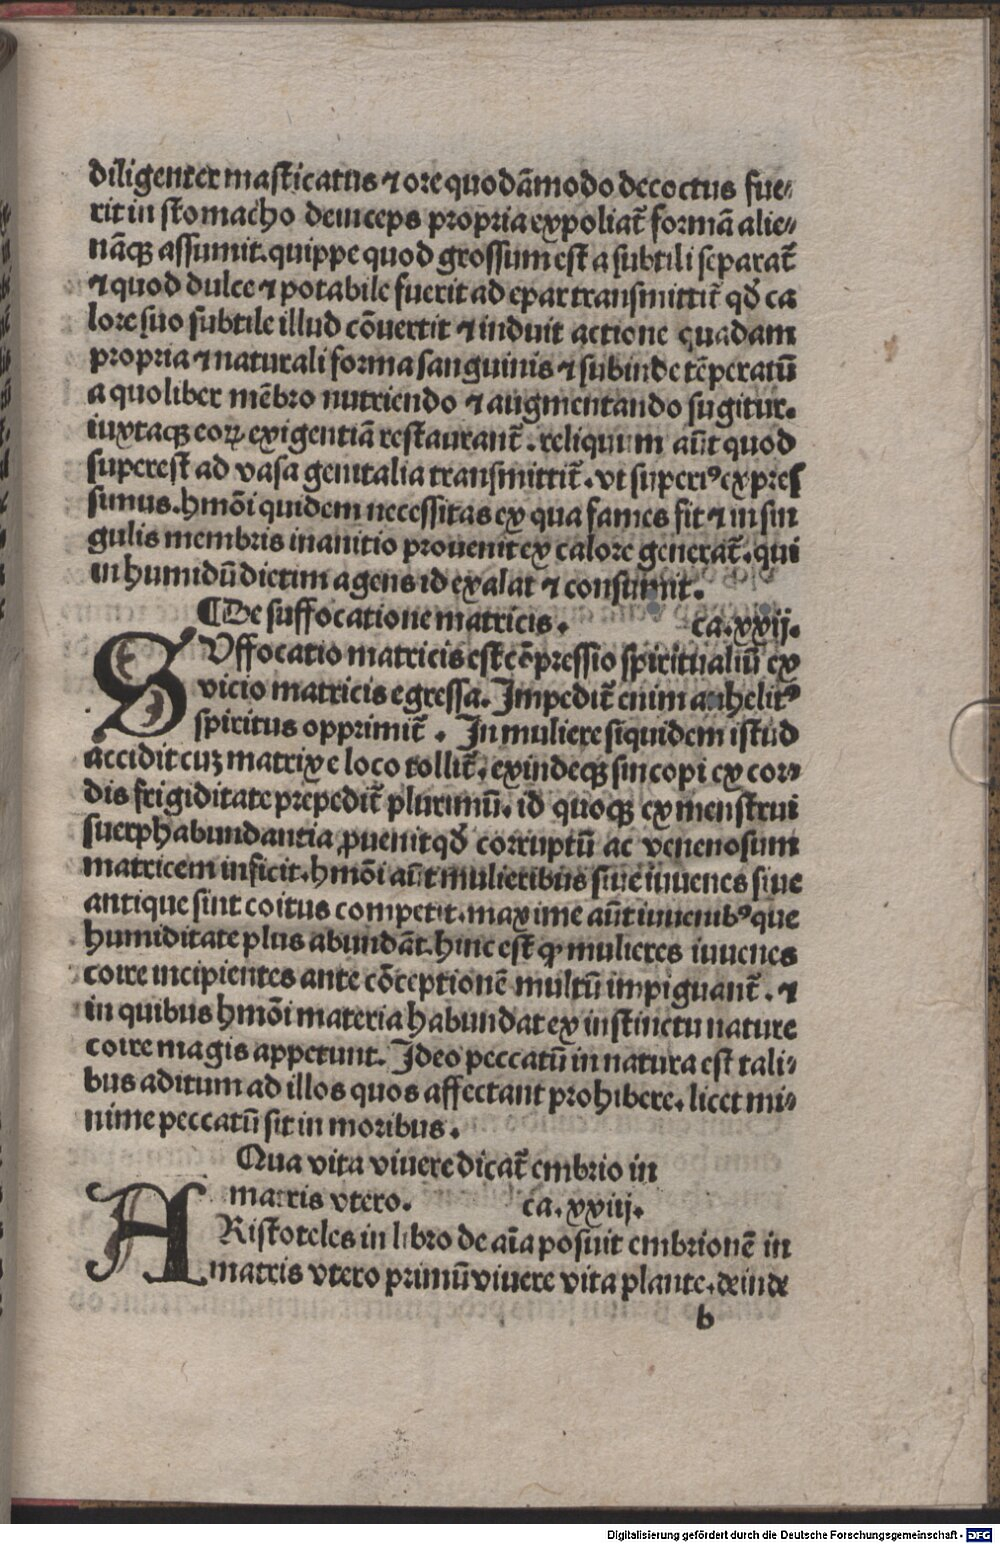 diligenter masticatus ⁊ ore quodāmodo decoctus fue⸗
rit in stomacho deinceps propria expoliat̄ formā alie⸗
nāqꝫ assumit. quippe quod grossum est a subtili separat̄
⁊ quod dulce ⁊ potabile fuerit ad epar transmittit̄ qđ ca
lore suo subtile illud cōuertit ⁊ induit actione quadam
propria ⁊ naturali forma sanguinis ⁊ subinde tēperatū
a quolibet mēbro nutriendo ⁊ augmentando sugitur.
iuxtaqꝫ eoꝝ exigentiā restaurant̄. reliquum aūt quod
superest ad vasa genitalia transmittit̄. vt superiꝰ expres
simus. hmōi quidem necessitas ex qua fames fit ⁊ in sin
gulis membris inanitio prouenit ex calore generat̄. qui
in humidū dietim agens id exalat ⁊ consumit.
¶De suffocatione matricis. ca. xxij.
SVffocatio matricis est cōpressio spiritualiū ex
vicio matricis egressa. Impedit̄ enim anhelitꝰ
spiritus opprimit̄. In muliere siquidem istud
accidit cuꝫ matrix e loco tollit̄. exindeqꝫ sincopi ex cor⸗
dis frigiditate prepedit̄ plurimū. id quoqꝫ ex menstrui
suerphabundantia ꝓuenit qđ corruptū ac venenosum
matricem inficit. hmōi aūt mulieribus siue iuuenes siue
antique sint coitus competit. maxime aūt iuuenibꝰ que
humiditate plus abundāt. hinc est ꝙ mulieres iuuenes
coire incipientes ante cōceptionē multū impiguant̄. ⁊
in quibus hmōi materia habundat ex instinctu nature
coire magis appetunt. Ideo peccatū in natura est tali⸗
bus aditum ad illos quos affectant prohibere. licet mi⸗
nime peccatū sit in moribus.
Qua vita viuere dicat̄ embrio in
matris vtero. ca. xxiij.
ARistoteles in libro de aīa posuit embrionē in
matris vtero primū viuere vita plante. deinde
b
Digitalisierung gefördert durch die Deutsche Forschungsgemeinschaft - DFG